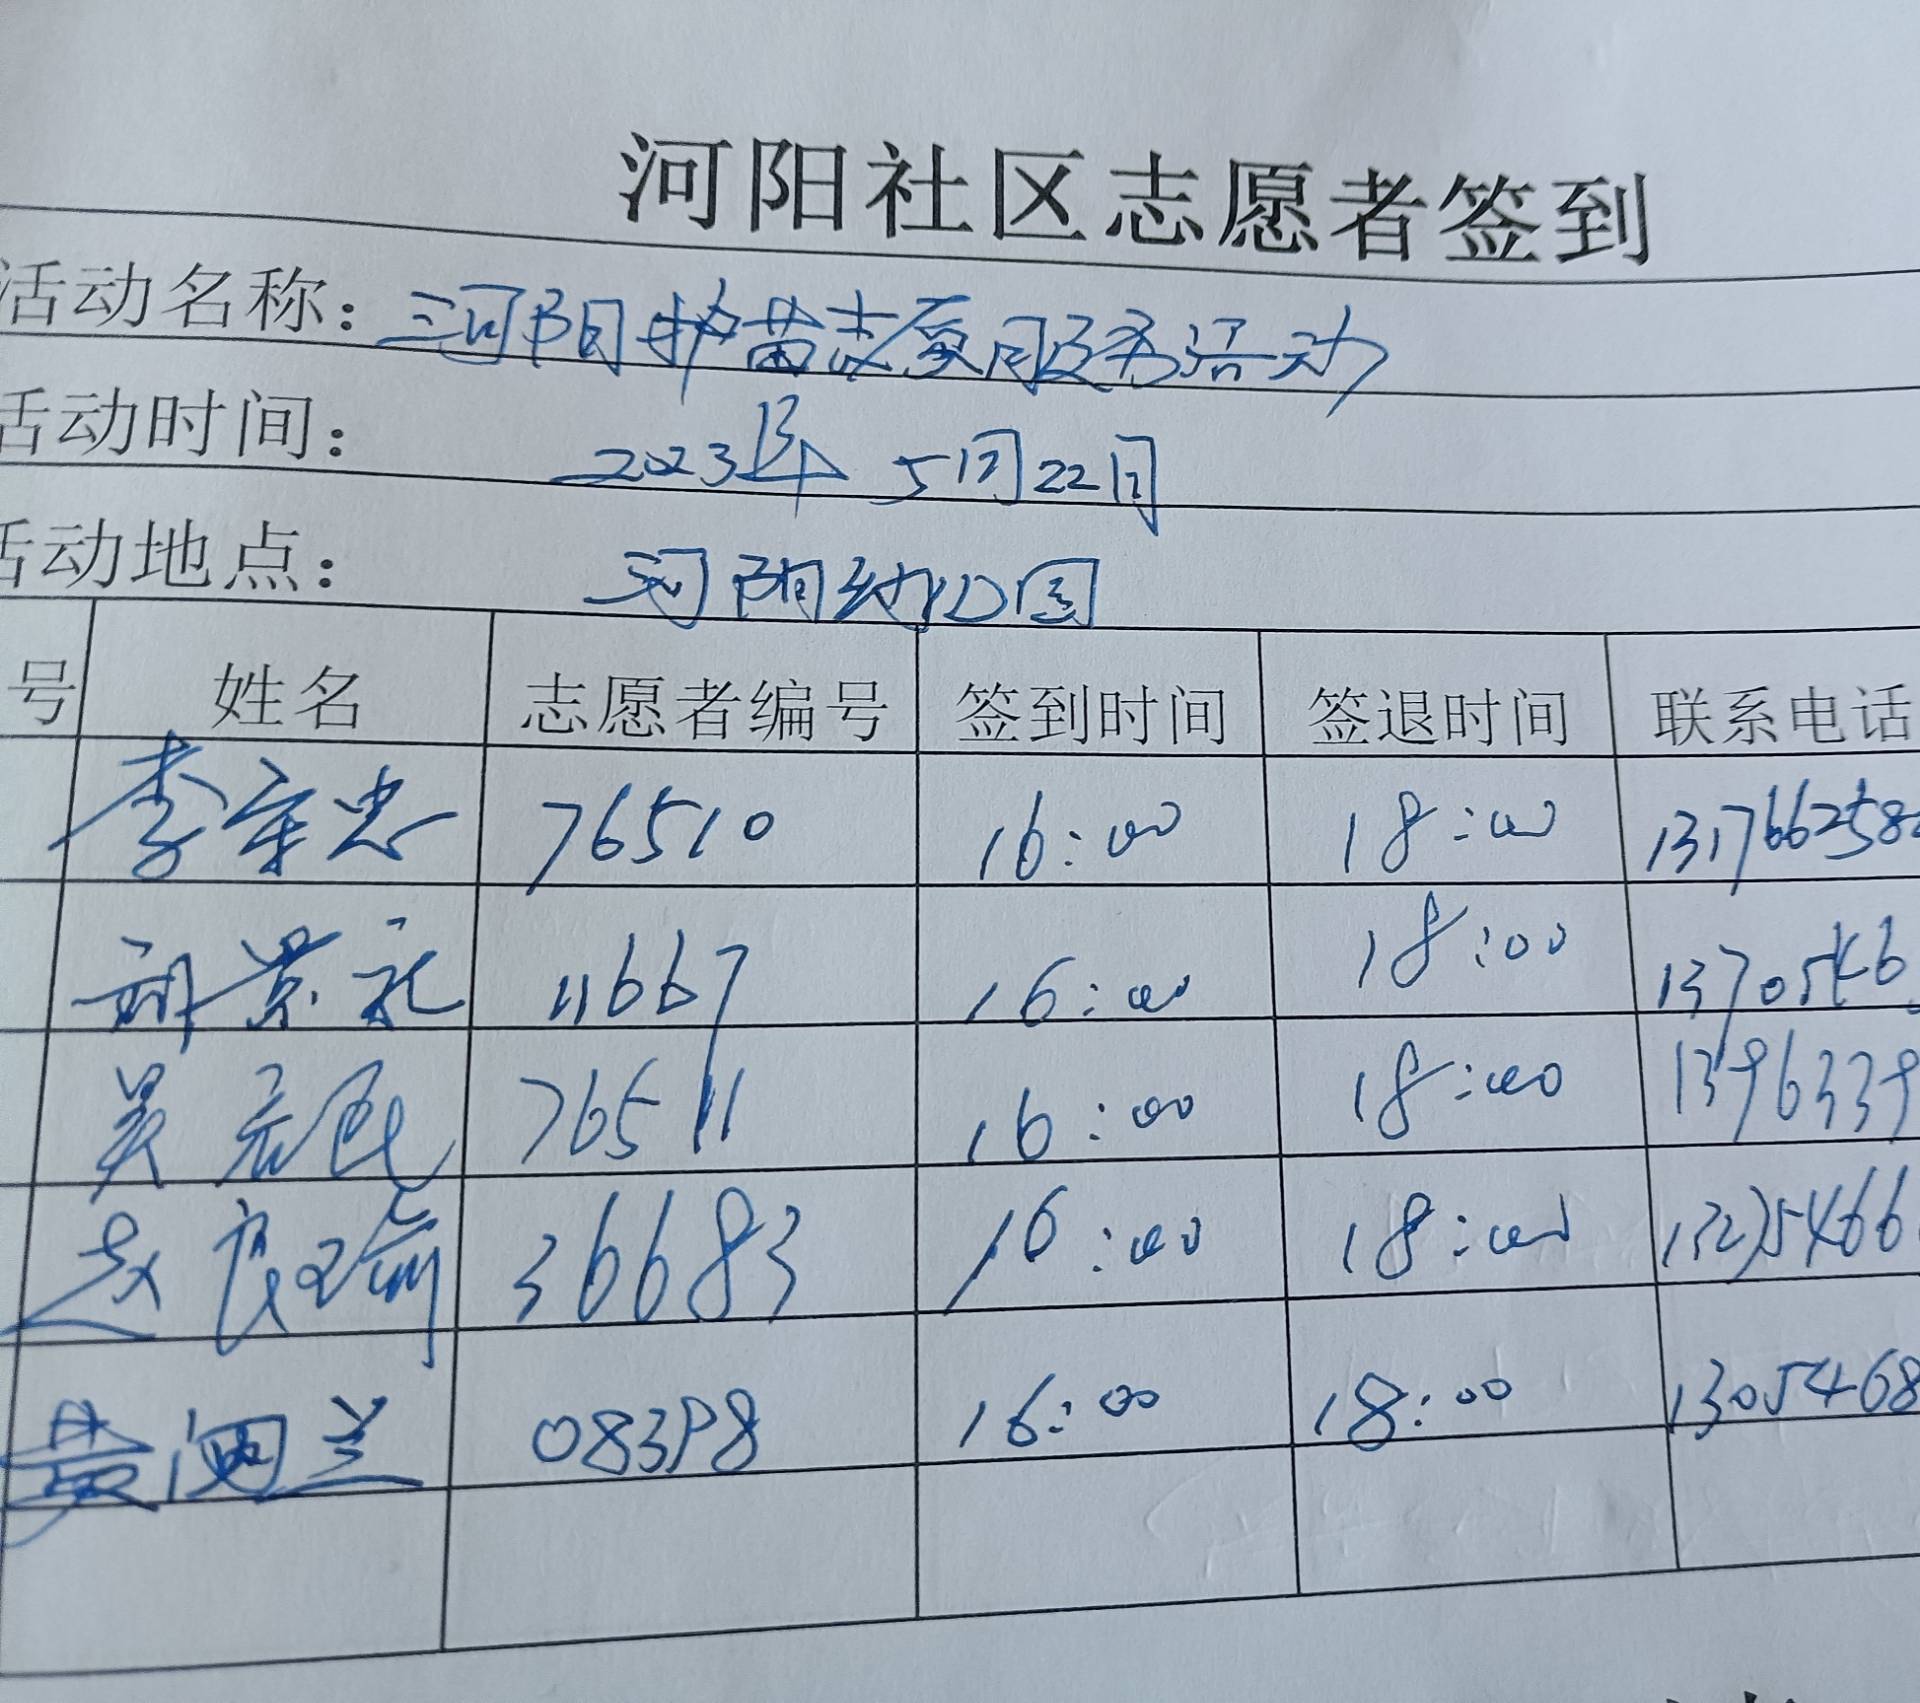 河阳社区志愿者签到
活动名称：河阳护苗志愿服务活动
活动时间： 2023年 5月22日
活动地点： 河阳幼儿园
号 姓名 志愿者编号 签到时间 签退时间 联系电话
李宗忠 76510 16:00 18:00 131766258
胡景礼 11667 16:00 18:00 1370546
吴 76511 16:00 18:00 1396339
赵良瑜 36683 16:00 18:00 13275466
黄兰 08398 16:00 18:00 13054468